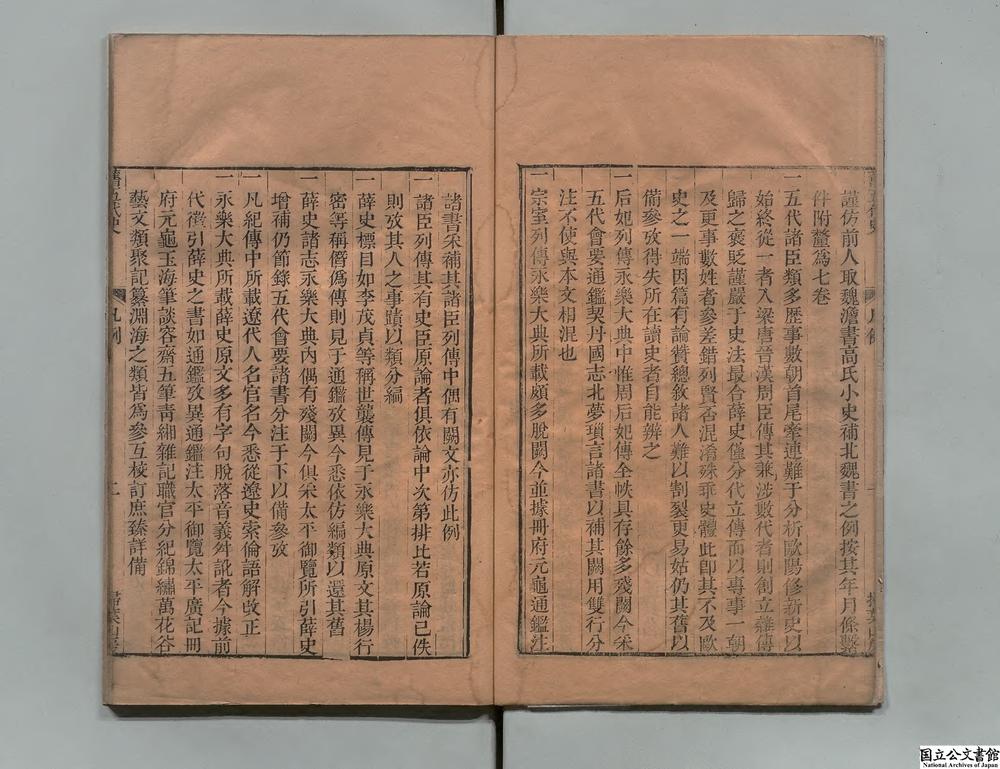 謹仿前人取魏澹書高氏小史補北魏書之例按其年月條繫
件附釐爲七卷
一五代諸臣類多歷事數朝首尾牽連難于分析歐陽修新史以
始終從一者入梁唐晉漢周臣傳其兼涉數代者則創立雜傳
歸之褒貶謹嚴于史法最合薛史僅分代立傳而以專事一朝
及更事數姓者參差錯列賢否混淆殊乖史體此卽其不及歐
史之一端因篇有論贊總敘諸人難以割裂更易姑仍其舊以
備參攷得失所在讀史者自能辨之
一后妃列傳永樂大典中惟周后妃傳全帙具存餘多殘闕今采
五代會要通鑑契丹國志北夢瑣言諸書以補其闕用雙行分
注不使與本文相混也
一宗室列傳永樂大典所載頗多脫闕今並據冊府元龜通鑑注
諸書采補其諸臣列傳中偶有闕文亦仿此例
一諸臣列傳其有史臣原論者俱依論中次第排比若原論已佚
則攷其人之事蹟以類分編
一薛史標目如李茂貞等稱世襲傳見于永樂大典原文其楊行
密等稱僭僞傳則見于通鑑攷異今悉依仿編類以還其舊
一薛史諸志永樂大典內偶有殘闕今俱采太平御覽所引薛史
增補仍節錄五代會要諸書分注于下以備參攷
一凡紀傳中所載遼代人名官名今悉從遼史索倫語解改正
一永樂大典所載薛史原文多有字句脫落音義舛訛者今據前
代徵引薛史之書如通鑑攷異通鑑注太平御覽太平廣記冊
府元龜玉海筆談容齋五筆青緗雜記職官分紀錦繡萬花谷
藝文類聚記纂淵海之類皆爲參互校訂庶臻詳備
凡例
二
国立公文書館
National Archives of Japan